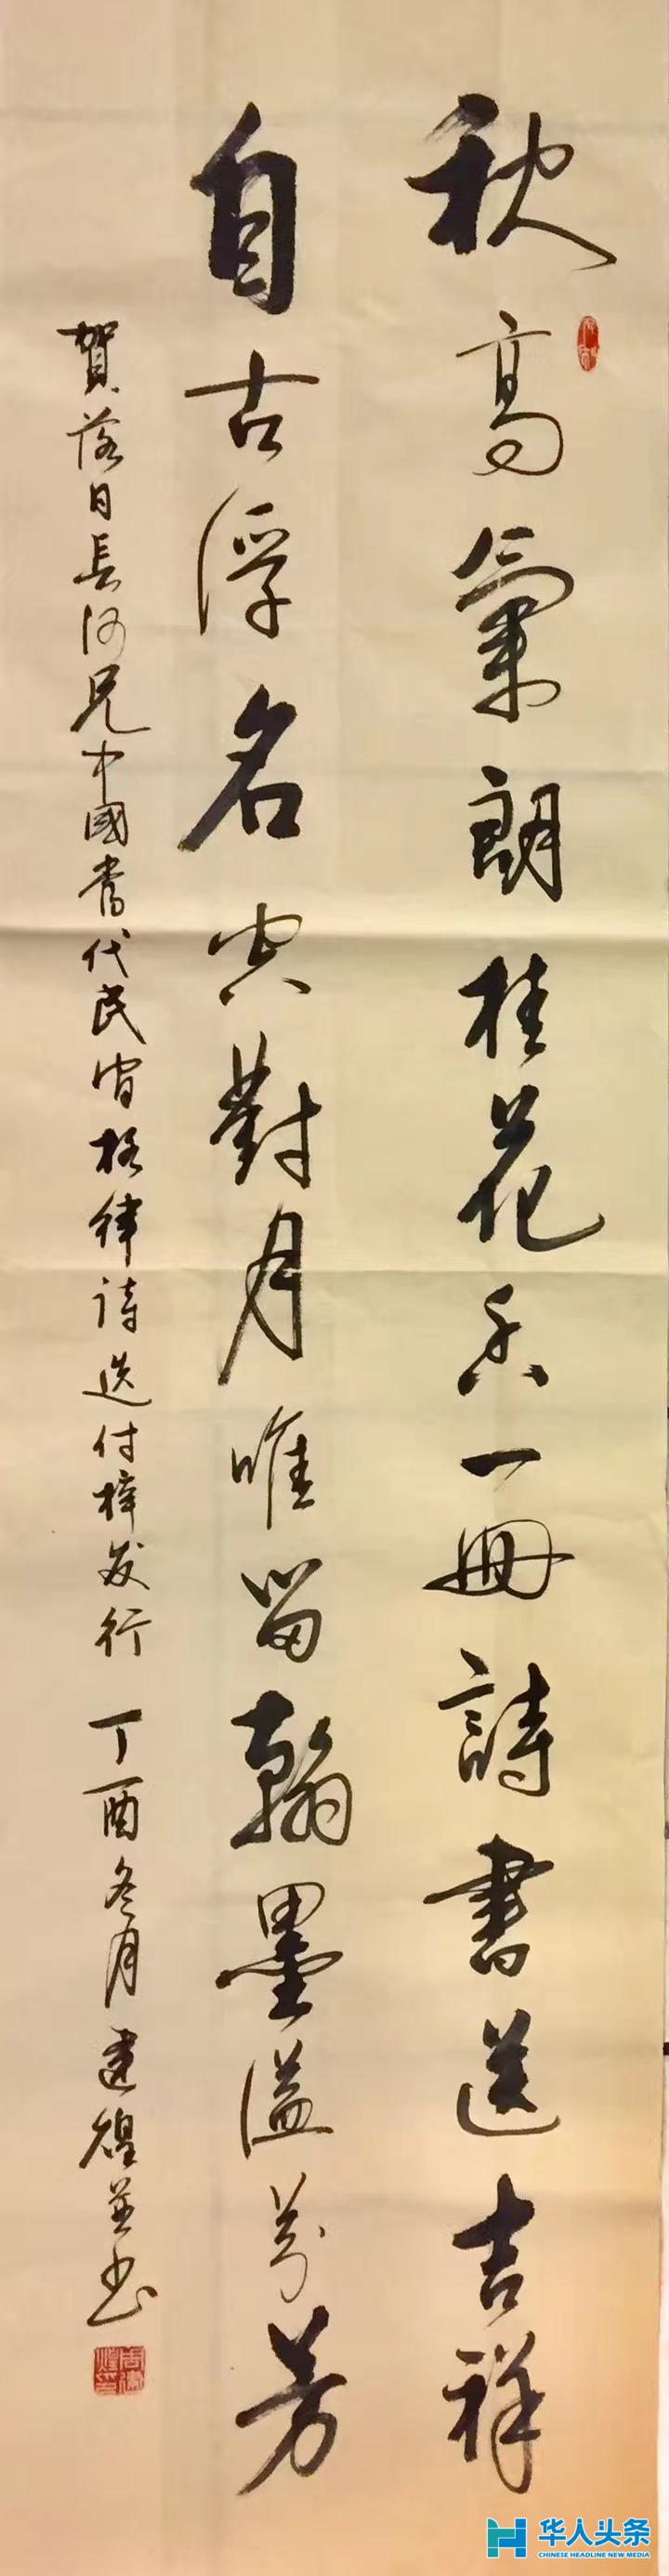 秋高氣朗桂花香一冊詩書送吉祥
自古浮名空對月唯留翰墨溢芬芳
賀落日長河兄中國當代民間格律詩選付梓发行 丁酉冬月建煌並书
华人头条
CHINESE HEADLINE NEW MEDIA